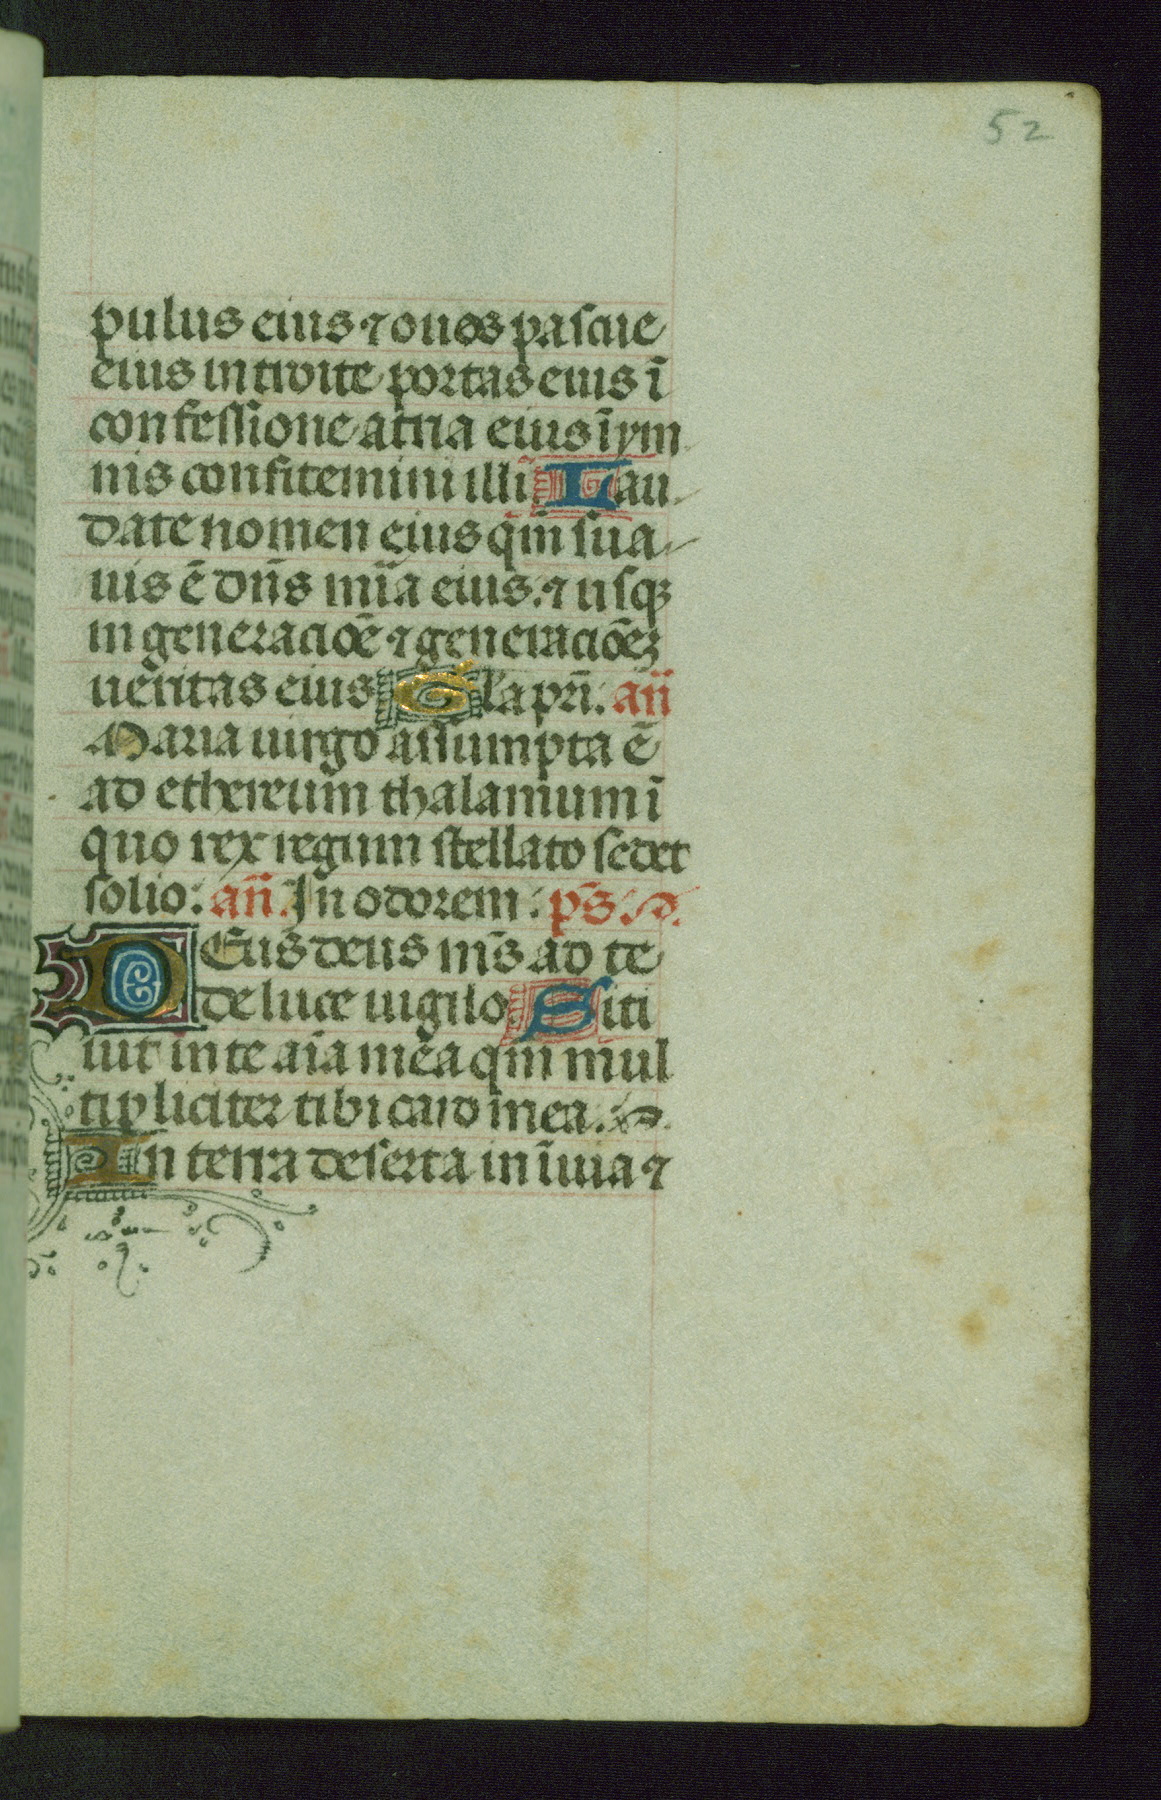 52
pulus eius ⁊ oues pascue
eius introite portas eius ī
confessione atria eius ī ym
nis confitemini illi. Lau
date nomen eius qm̄ sua
uis ē dn̄s mīa eius. ⁊ usqꝫ
in generacioē ⁊ generacioēꝫ
ueritas eius Gl'a pri. an̄
Maria uirgo assumpta ē
ad ethereum thalamum ī
quo rex regum stellato sedet
solio: an̄. In odorem: ps̄.
DEus deus ms̄ ad te
de luce uigilo. Siti
uit in te aīa mea qm̄ mul
tipliciter tibi caro mea.
In terra deserta in īuia ⁊